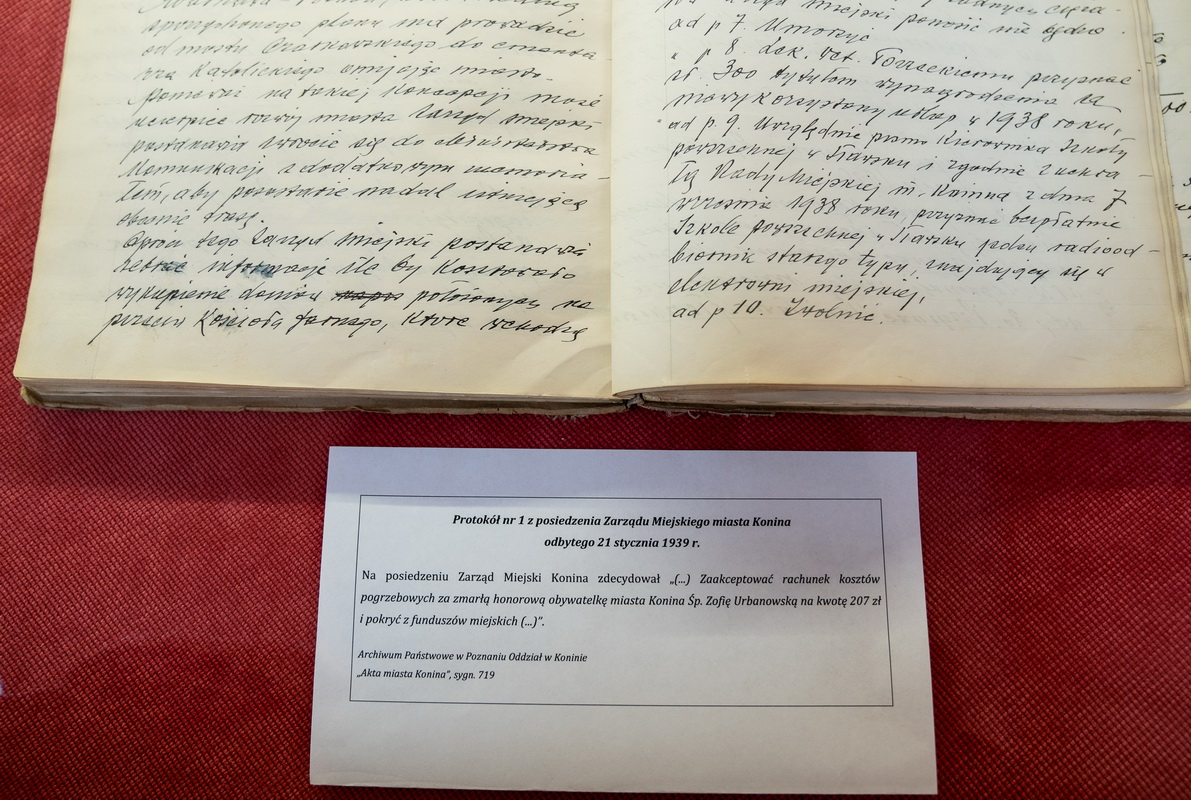 sporządzonego planu ma prowadzić
od mostu Czarkowskiego do cmenta-
rza Katolickiego omijając miasto.
Ponieważ na takiej koncepcji może
ucierpieć rozwój miasta Zarząd Miejski
postanawia zwrócić się do Ministerstwa
Komunikacji z dodatkowym memoria-
łem, aby pozostawić nadal istniejącą
obecnie trasę.
Oprócz tego Zarząd Miejski postanawia
zebrać informacje ile by kosztowało
wykupienie domów położonych na
przeciw Kościoła farnego, które wchodzą
miejski ponosić nie będzie.
ad p 7. Umorzyć
" p 8. lek. wet. przyznać
zł. 300 tytułem wynagrodzenia za
niewykorzystany urlop w 1938 roku,
ad p. 9. Uwzględnić pismo Kierownika Szkoły
powszechnej w Sławsku i zgodnie z uchwa-
łą Rady Miejskiej m. Konina z dnia 7
września 1938 roku, przyznać bezpłatnie
Szkole powszechnej w Sławsku jeden radiood-
biornik starego typu, znajdujący się w
elektrowni miejskiej,
ad p 10. Zwolnić.
Protokół nr 1 z posiedzenia Zarządu Miejskiego miasta Konina
odbytego 21 stycznia 1939 r.
Na posiedzeniu Zarząd Miejski Konina zdecydował „(...) Zaakceptować rachunek kosztów
pogrzebowych za zmarłą honorową obywatelkę miasta Konina Śp. Zofię Urbanowską na kwotę 207 zł
i pokryć z funduszów miejskich (...)”.
Archiwum Państwowe w Poznaniu Oddział w Koninie
„Akta miasta Konina”, sygn. 719